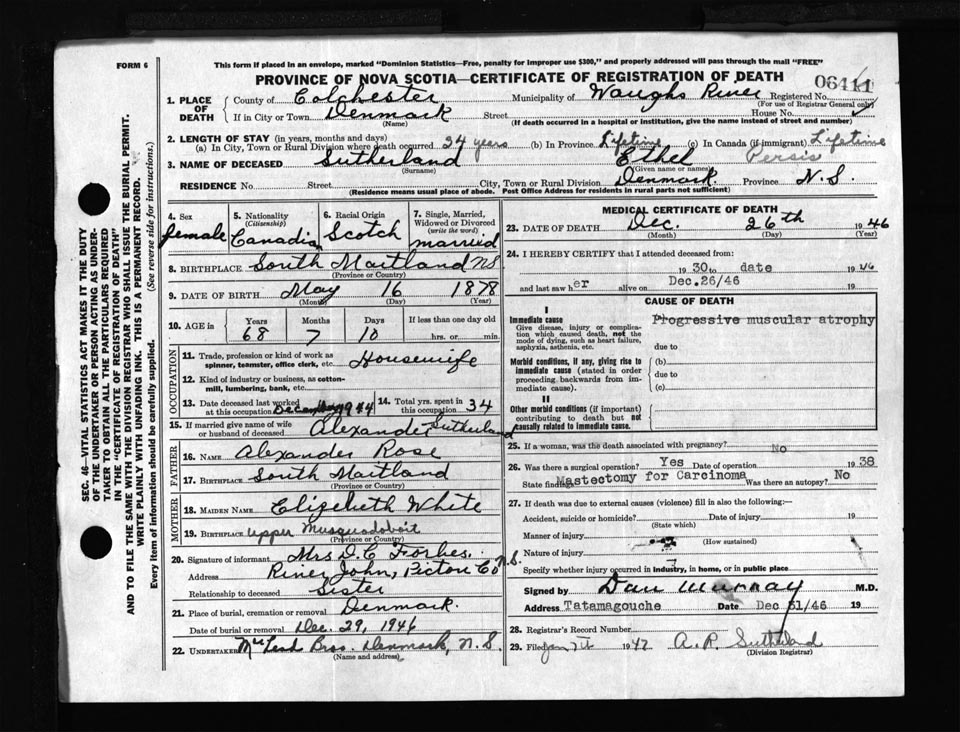 FORM 6
This form if placed in an envelope, marked "Dominion Statistics—Free, penalty for improper use $300," and properly addressed will pass through the mail "FREE"
PROVINCE OF NOVA SCOTIA—CERTIFICATE OF REGISTRATION OF DEATH
06411
1. PLACE OF DEATH
County of Colchester Municipality of Waughs River Registered No.
(For use of Registrar General only)
If in City or Town Denmark Street House No.
(Name) (If death occurred in a hospital or institution, give the name instead of street and number)
2. LENGTH OF STAY (in years, months and days)
(a) In City, Town or Rural Division where death occurred 34 years (b) In Province Lifetime (c) In Canada (if immigrant) Lifetime
3. NAME OF DECEASED Sutherland Ethel Persis
(Surname) (Given name or names)
RESIDENCE No. Street City, Town or Rural Division Denmark Province N.S.
(Residence means usual place of abode. Post Office Address for residents in rural parts not sufficient)
4. Sex female
5. Nationality (Citizenship) Canadia
6. Racial Origin Scotch
7. Single, Married, Widowed or Divorced (write the word) married
8. BIRTHPLACE South Maitland NS
(Province or Country)
9. DATE OF BIRTH May 16 1878
(Month) (Day) (Year)
10. AGE in Years Months Days If less than one day old
68 7 10 hrs. or min.
OCCUPATION
11. Trade, profession or kind of work as spinner, teamster, office clerk, etc. Housewife
12. Kind of industry or business, as cotton-mill, lumbering, bank, etc.
13. Date deceased last worked at this occupation December 1944
14. Total yrs. spent in this occupation 34
15. If married give name of wife or husband of deceased Alexander Sutherland
FATHER
16. NAME Alexander Rose
17. BIRTHPLACE South Maitland
(Province or Country)
MOTHER
18. MAIDEN NAME Elizebeth White
19. BIRTHPLACE upper Musquodoboit
(Province or Country)
20. Signature of informant Mrs D. C Forbes.
Address River John, Pictou Co N.S.
Relationship to deceased Sister
21. Place of burial, cremation or removal Denmark.
Date of burial or removal Dec. 29, 1946
22. UNDERTAKER Bros. Denmark, N.S.
(Name and address)
MEDICAL CERTIFICATE OF DEATH
23. DATE OF DEATH Dec. 26th 1946
(Month) (Day) (Year)
24. I HEREBY CERTIFY that I attended deceased from:
1930 to date 1946
and last saw her alive on Dec.26/46 19
CAUSE OF DEATH
I
Immediate cause
Give disease, injury or complication which caused death, not the mode of dying, such as heart failure, asphyxia, asthenia, etc.
Progressive muscular atrophy
due to
Morbid conditions, if any, giving rise to immediate cause (stated in order proceeding backwards from immediate cause).
(b)
due to
(c)
II
Other morbid conditions (if important) contributing to death but not causally related to immediate cause.
25. If a woman, was the death associated with pregnancy? No
26. Was there a surgical operation? Yes Date of operation 1938
State findings Mastectomy for Carcinoma Was there an autopsy? No
27. If death was due to external causes (violence) fill in also the following:—
Accident, suicide or homicide? Date of injury 19
(State which)
Manner of injury
(How sustained)
Nature of injury
Specify whether injury occurred in industry, in home, or in public place
Signed by Dan Murray M.D.
Address Tatamagouche Date Dec 31/46 19
28. Registrar's Record Number
29. Filed 1947 A. R. Sutherland
(Division Registrar)
SEC. 46—VITAL STATISTICS ACT MAKES IT THE DUTY
OF THE UNDERTAKER OR PERSON ACTING AS UNDER-
TAKER TO OBTAIN ALL THE PARTICULARS REQUIRED
IN THE "CERTIFICATE OF REGISTRATION OF DEATH"
AND TO FILE THE SAME WITH THE DIVISION REGISTRAR WHO SHALL ISSUE THE BURIAL PERMIT.
WRITE PLAINLY WITH UNFADING INK. THIS IS A PERMANENT RECORD.
Every item of information should be carefully supplied. (See reverse side for instructions.)